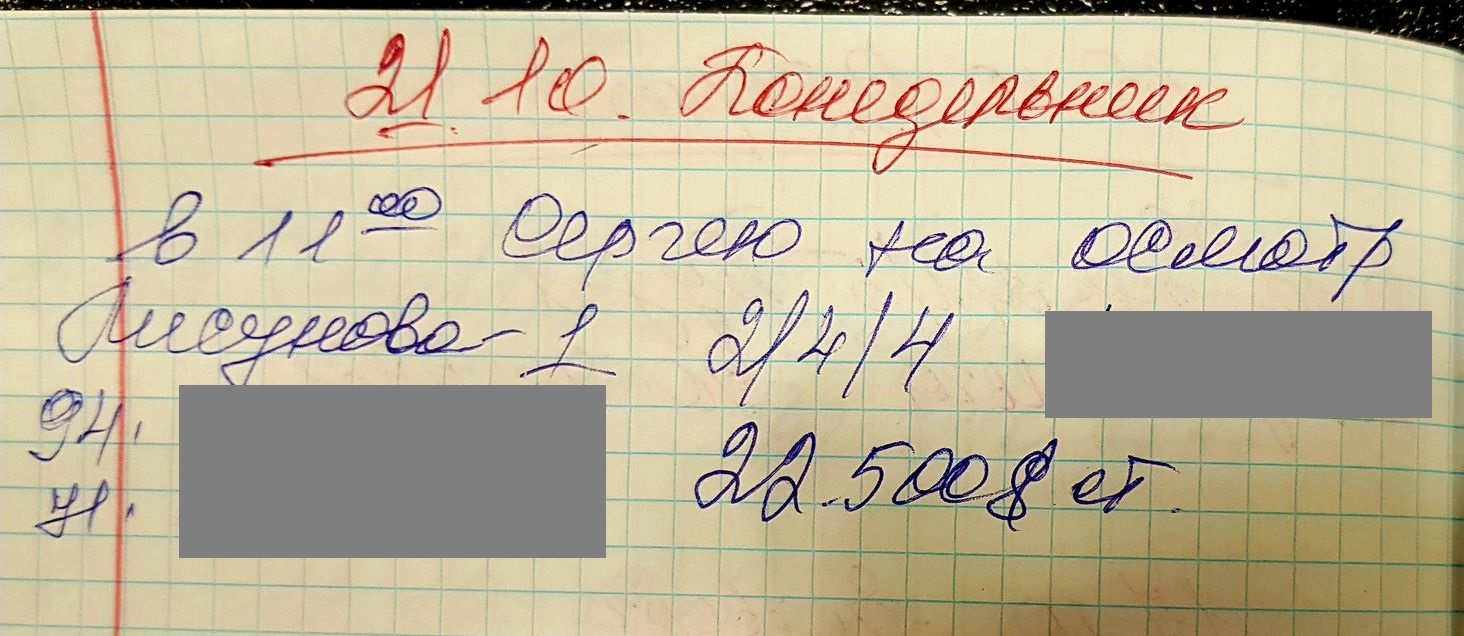 21.10. Понедельник
в 11 00 Сергею на осмотр
Лисунова - 1 2/4/4
94.
71.
22.500$ ст.